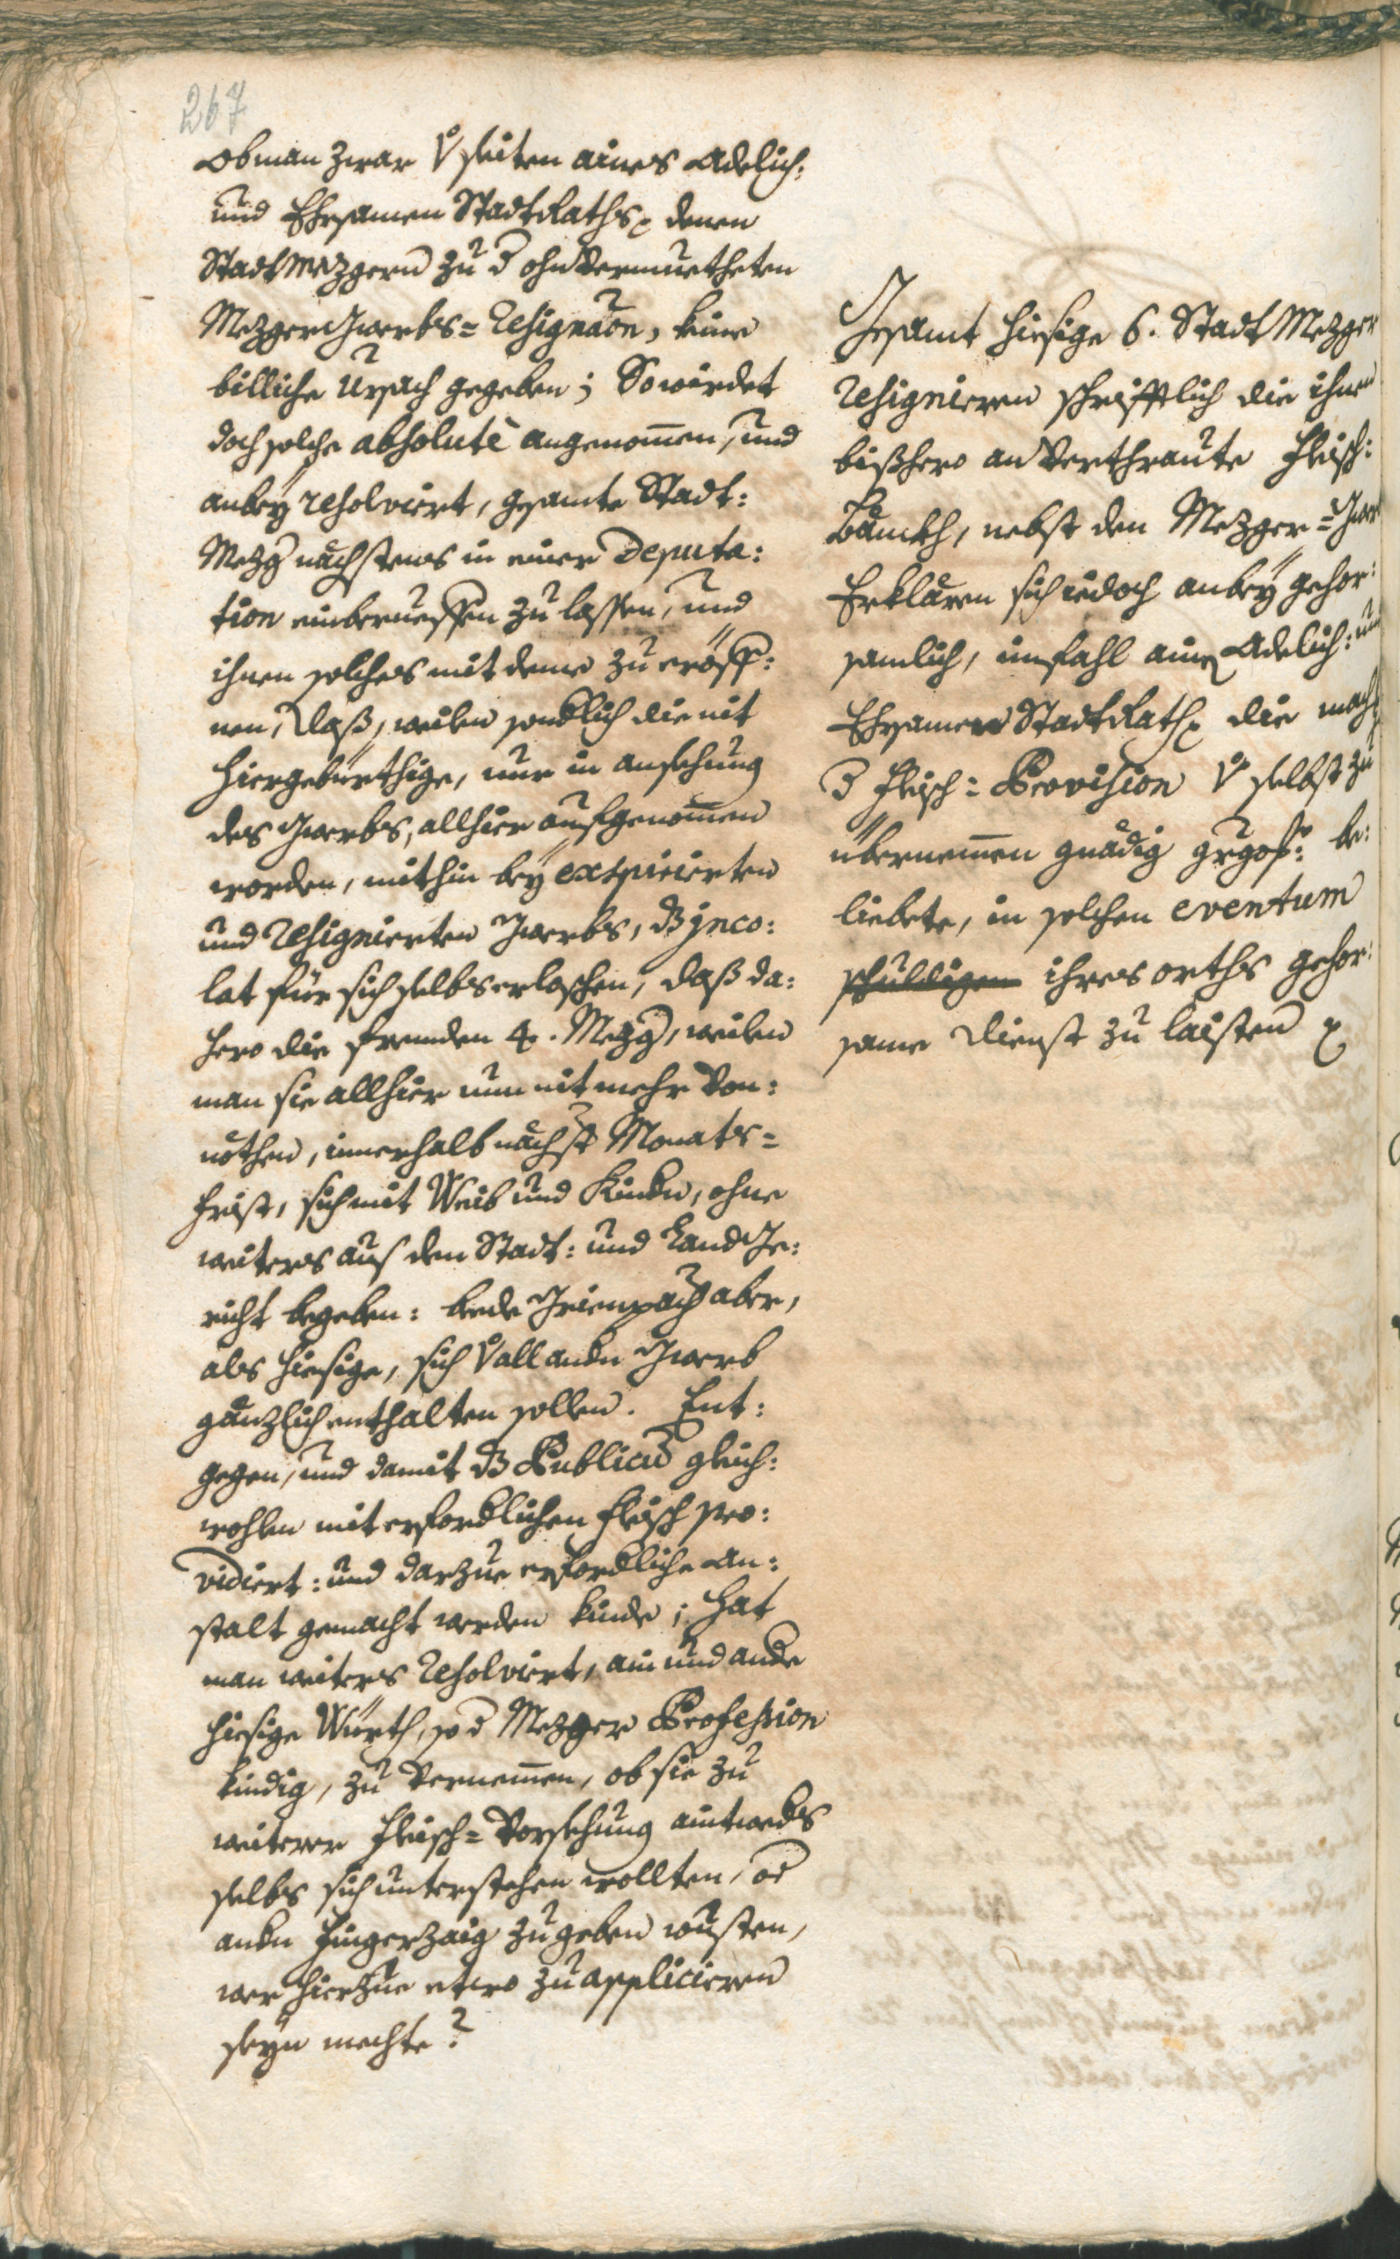 267
Obman zwar v̊ seiten aines Adelich:
und Ehrsamen StadtRaths denen
StadtMezgern zu d ohnVermuetheten
MezgerGwerbs=Resignaõn, keine
billiche Ursach gegeben; So wirdet
doch solche absolutè angenom̄en, und
anbeÿ resolviert, gesamte Stadt:
Mezg nächstens in einer Deputa:
tion einberueffen zu lassen, und
ihnen solches mit deme zu eröff:
nen, daß, weilen sondlich die nit
hiergebürthige, nur in ansehung
des Gwerbs, allhier aufgenom̄en
worden, mithin beÿ exspirierten
und Resignierten Gwerbs, dz Jnco:
lat für sich selbs erloschen, daß da:
hero die fremden 4. Mezg, weilen
man sie allhier nun nit mehr Von:
nöthen, innerhalb nächst Monats=
frist, sich mit Weib und Kindn, ohne
weiters aus dem Stadt: und LandGe:
richt begeben: beede Grienpach aber,
als hiesige, sich v̊ all andn Gwerb
gänzlich enthalten sollen. Ent:
gegen, und damit dz Publicũ gleich:
wohlen mit erfordlichen fleisch pro:
vidiert: und darzue erfordliche An:
stalt gemacht werden kinde; Hat
man weiters Resolviert, ain und ande
hiesige Würth, so d Mezger Profession
kindig, zu Vernem̄en, ob sie zu
weiterer Fleisch=Vorsehung aintweds
selbs sich unterstehen wollten, od
andn Fingerzaig zu geben wusten,
wer hierzue etwo zu applicieren
seyn mechte?
Gesamt hiesige 6. Stadt Mezger
Resignieren schrifftlich die ihnen
bißhero anVerthraute Fleisch:
Bänckh, nebst den Mezger=Gwer
Erklären sich iedoch anbeÿ gehor:
samlich, imfahl ain Adelich: und
Ehrsamer StadtRath die mach
d Fleisch=Provision v̊ selbst zu
übernem̄en gnädig be:
liebete, in solchen eventum
schuldigen ihres orths gehor:
same Dienst zu laisten